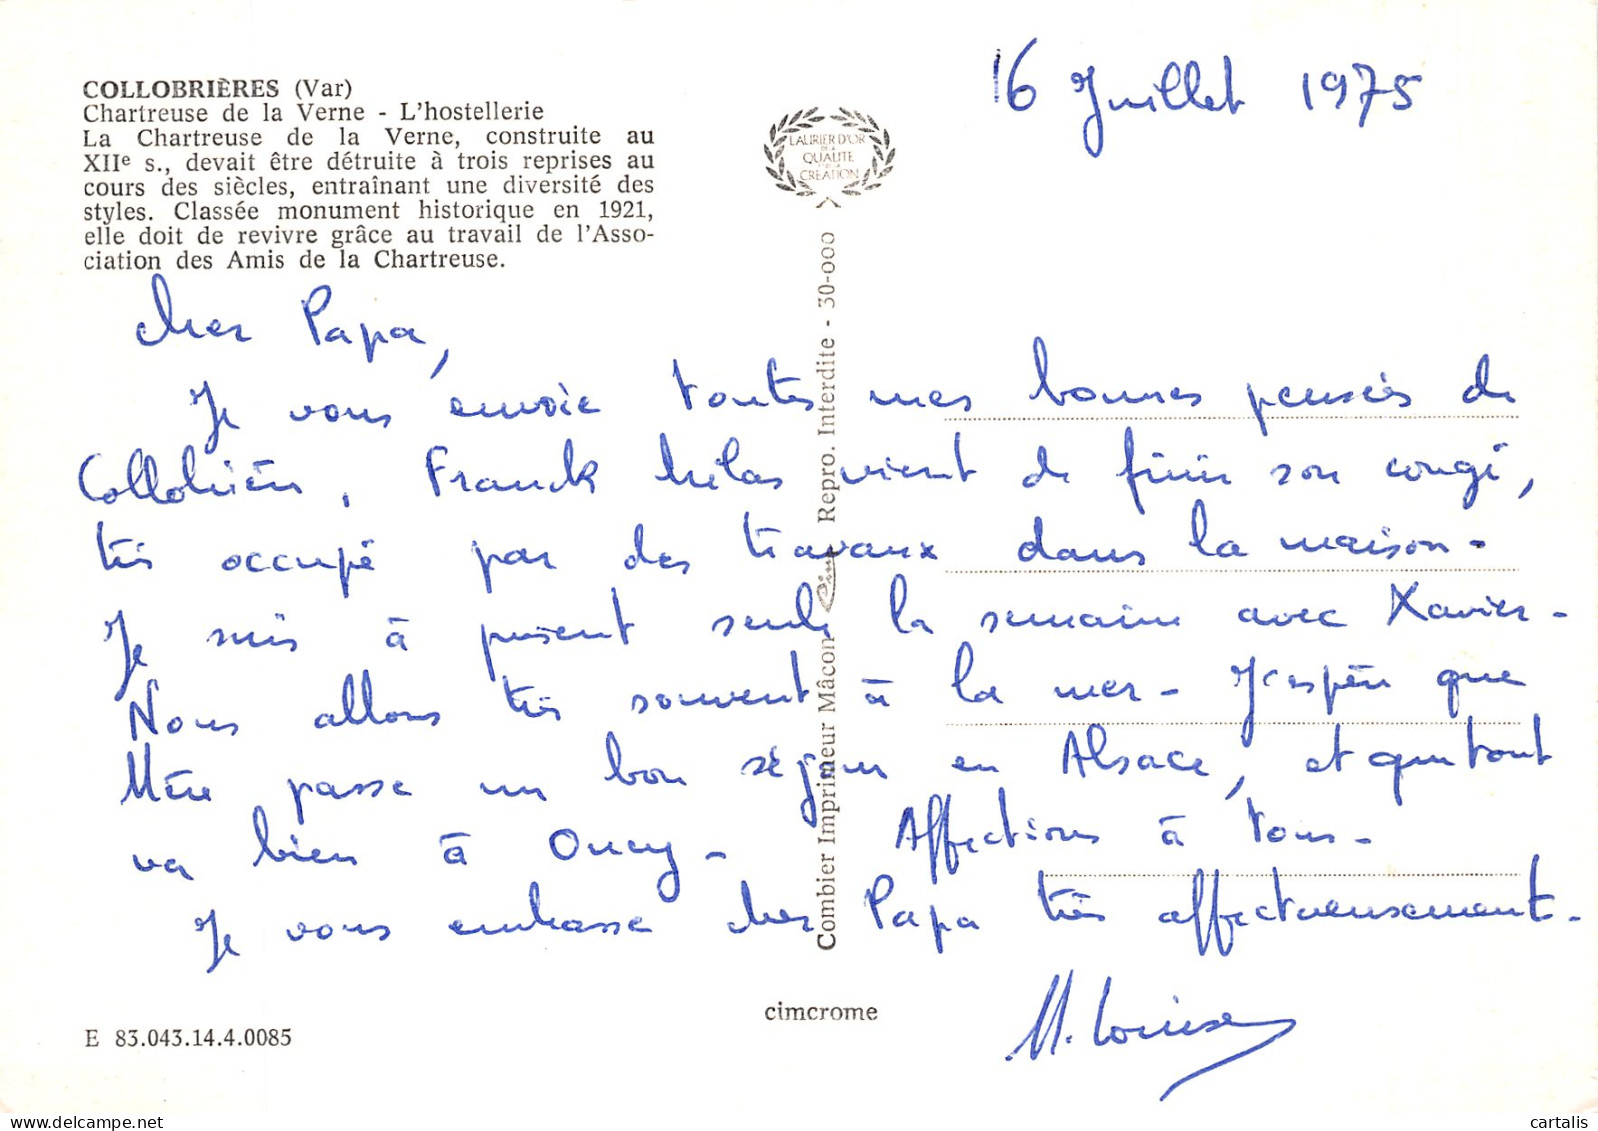 COLLOBRIÈRES (Var)
Chartreuse de la Verne - L'hostellerie
La Chartreuse de la Verne, construite au
XIIe s., devait être détruite à trois reprises au
cours des siècles, entraînant une diversité des
styles. Classée monument historique en 1921,
elle doit de revivre grâce au travail de l'Asso-
ciation des Amis de la Chartreuse.
LAURIER D'OR
DE LA
QUALITE
ET DE LA
CREATION
16 Juillet 1975
Cher Papa,
Je vous envoie toutes mes bonnes pensées de
Collobrières, Franck hélas vient de finir son congé,
très occupé par des travaux dans la maison-
Je suis à présent seule la semaine avec Xavier-
Nous allons très souvent à la mer- J'espère que
Mère passe un bon séjour en Alsace, et que tout
va bien à - Affections à tous-
Je vous embrasse cher Papa très affectueusement-
M. Louise
Combier Imprimeur Mâcon Cim Repro. Interdite - 30-000
cimcrome
E 83.043.14.4.0085
cartalis